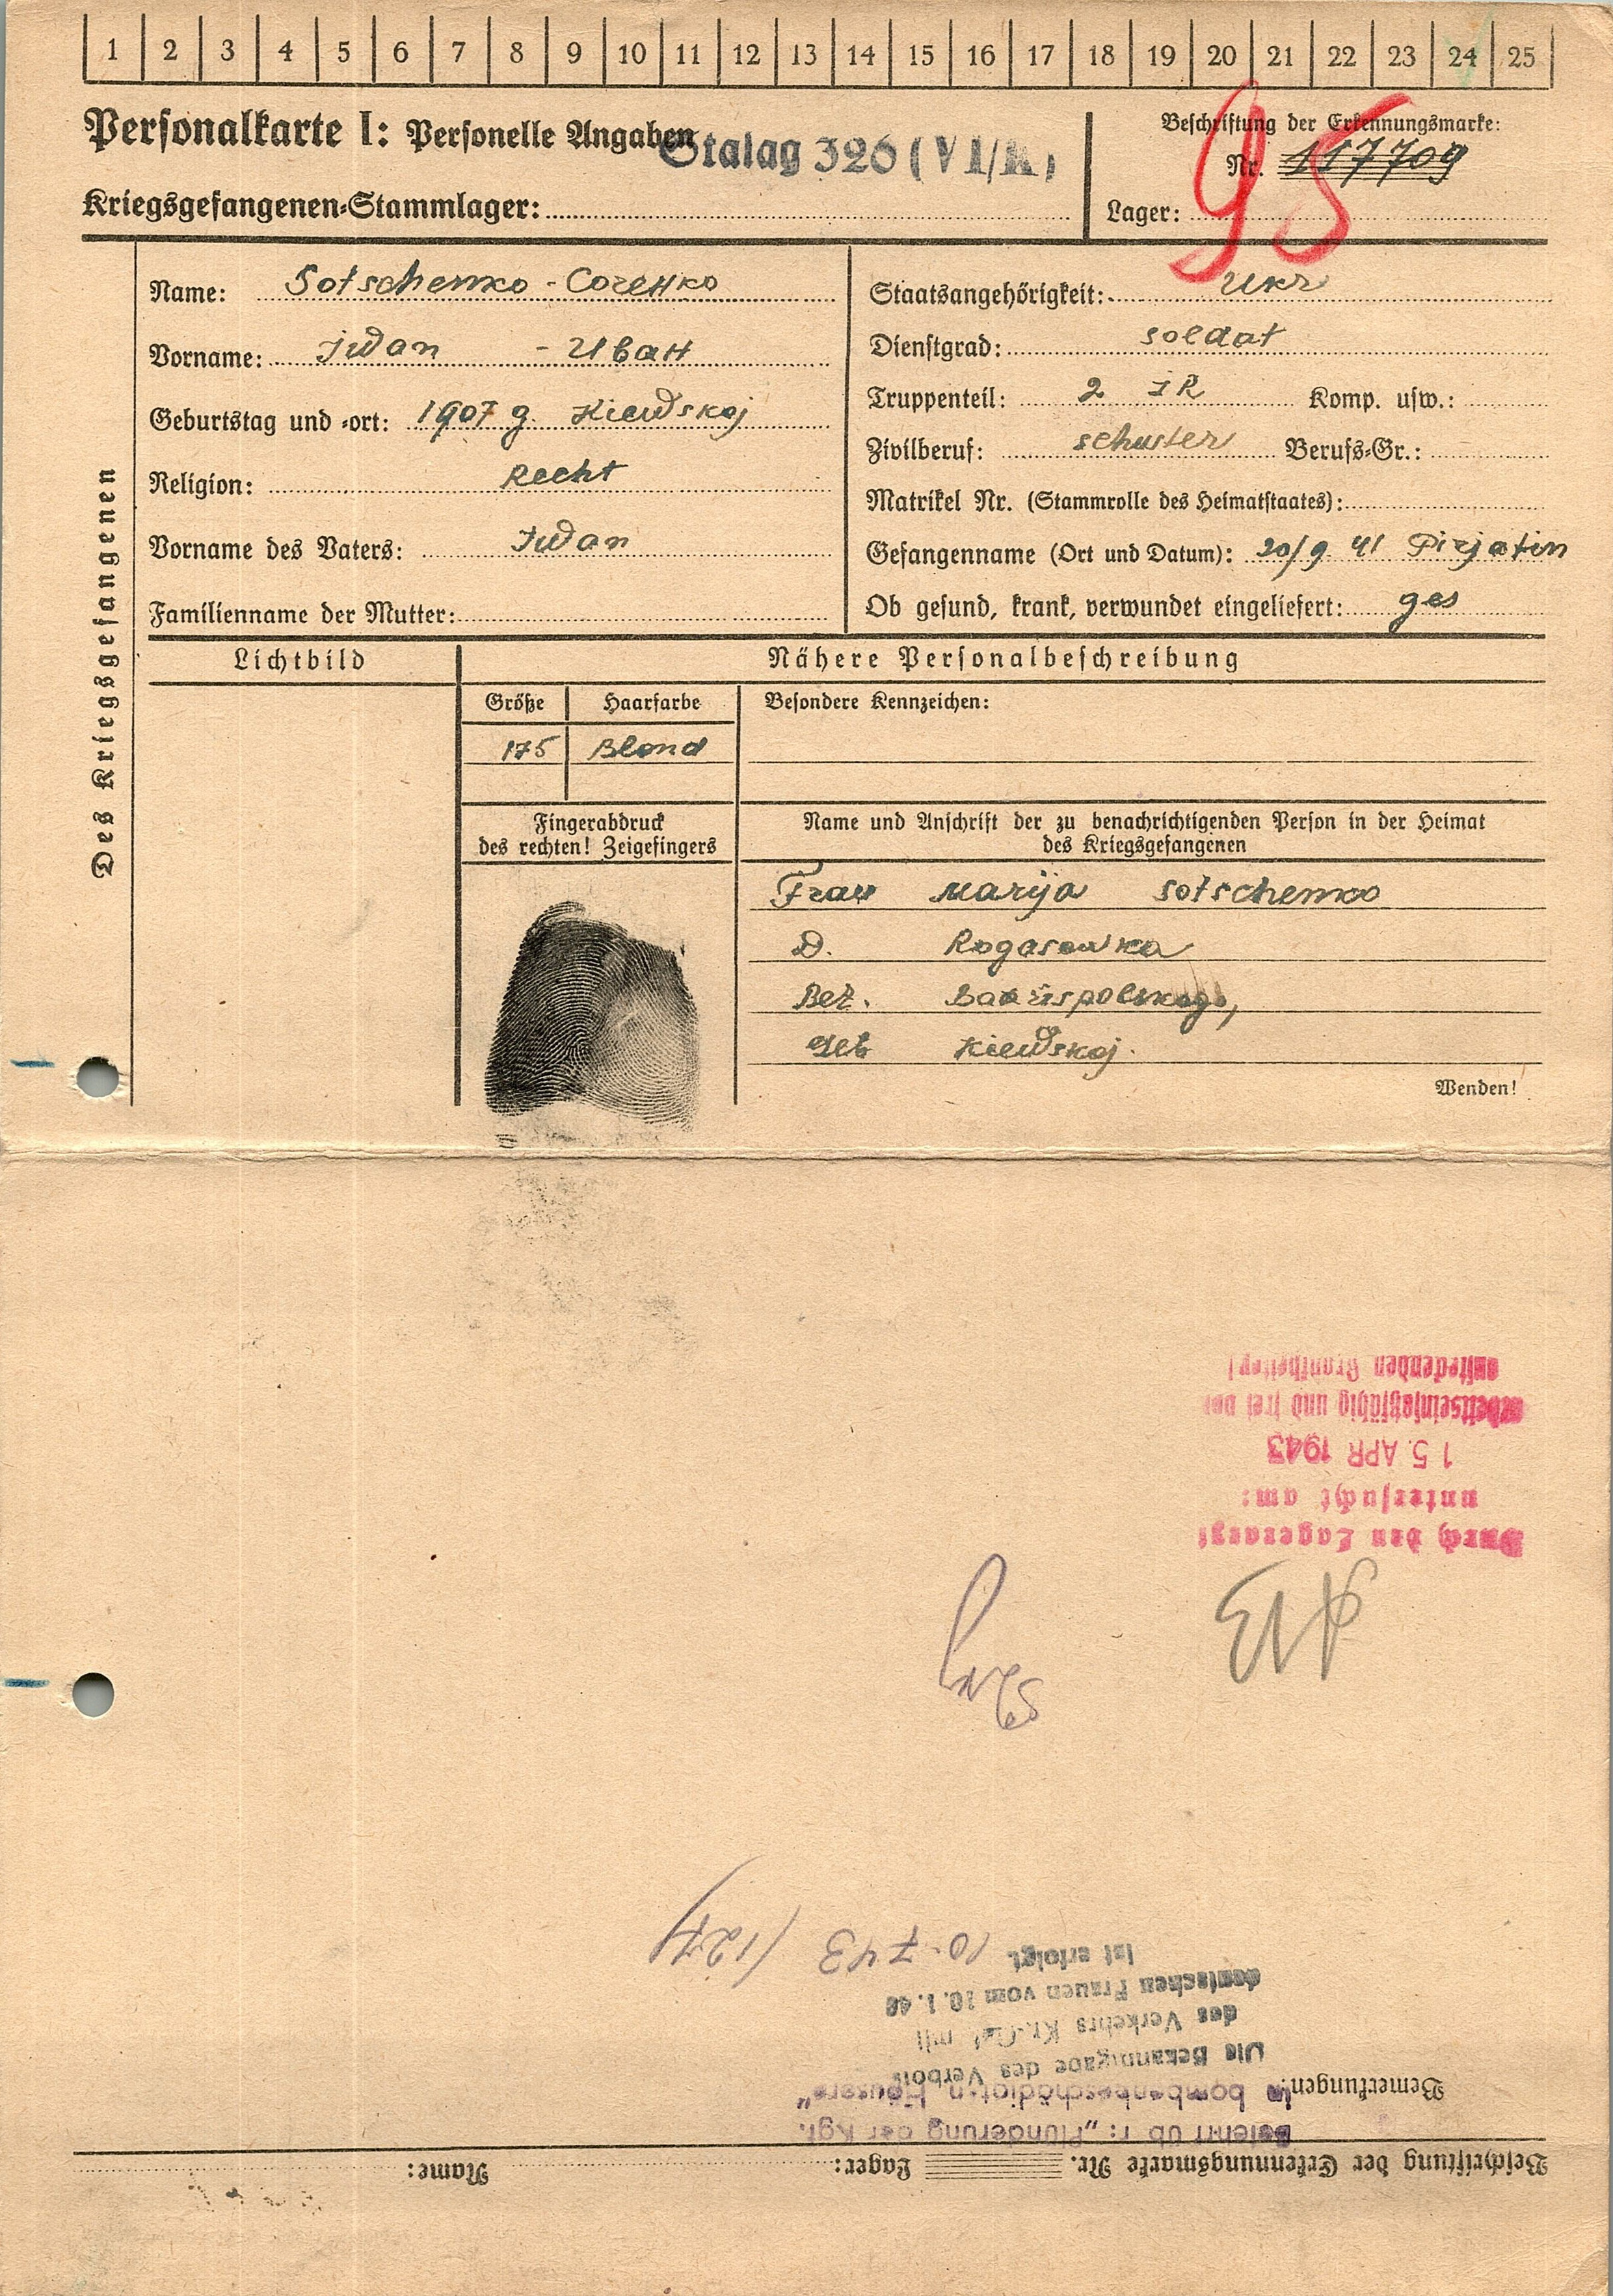 1 2 3 4 5 6 7 8 9 10 11 12 13 14 15 16 17 18 19 20 21 22 23 24 25
Personalkarte I: Personelle Angaben
Stalag 326 (VI/K)
Kriegsgefangenen-Stammlager:
Beschriftung der Erkennungsmarke:
Nr. 117709
Lager:
95
Des Kriegsgefangenen
Name: Sotschenko - Соченко
Vorname: Iwan - Иван
Geburtstag und -ort: 1907 g. Kiewskoj
Religion: Recht
Vorname des Vaters: Iwan
Familienname der Mutter:
Staatsangehörigkeit: Ukr
Dienstgrad: Soldat
Truppenteil: 2 IR Komp. usw.:
Zivilberuf: schuster Berufs-Gr.:
Matrikel Nr. (Stammrolle des Heimatstaates):
Gefangenname (Ort und Datum): 20/9 41 Pirjatin
Ob gesund, krank, verwundet eingeliefert: ges
Lichtbild
Nähere Personalbeschreibung
Größe Haarfarbe Besondere Kennzeichen:
175 Blond
Fingerabdruck
des rechten! Zeigefingers
Name und Anschrift der zu benachrichtigenden Person in der Heimat
des Kriegsgefangenen
Frau Marija Sotschenko
D. Rogasowka
Bez.
Geb Kiewskoj.
Wenden!
Beschriftung der Erkennungsmarke Nr. Lager: Name:
Belehrt üb r: „Plünderung der Kgf.
in bombenbeschädigten Häusern"
Bemerkungen:
Die Bekanntgabe des Verbots
des Verkehrs Kr.-Gef. mit
deutschen Frauen vom 10.1.40
ist erfolgt. 10.7.43 /127/
Durch den Lagerarzt
untersucht am:
15. APR 1943
arbeitseinsatzfähig und frei von
ansteckenden Krankheiten!